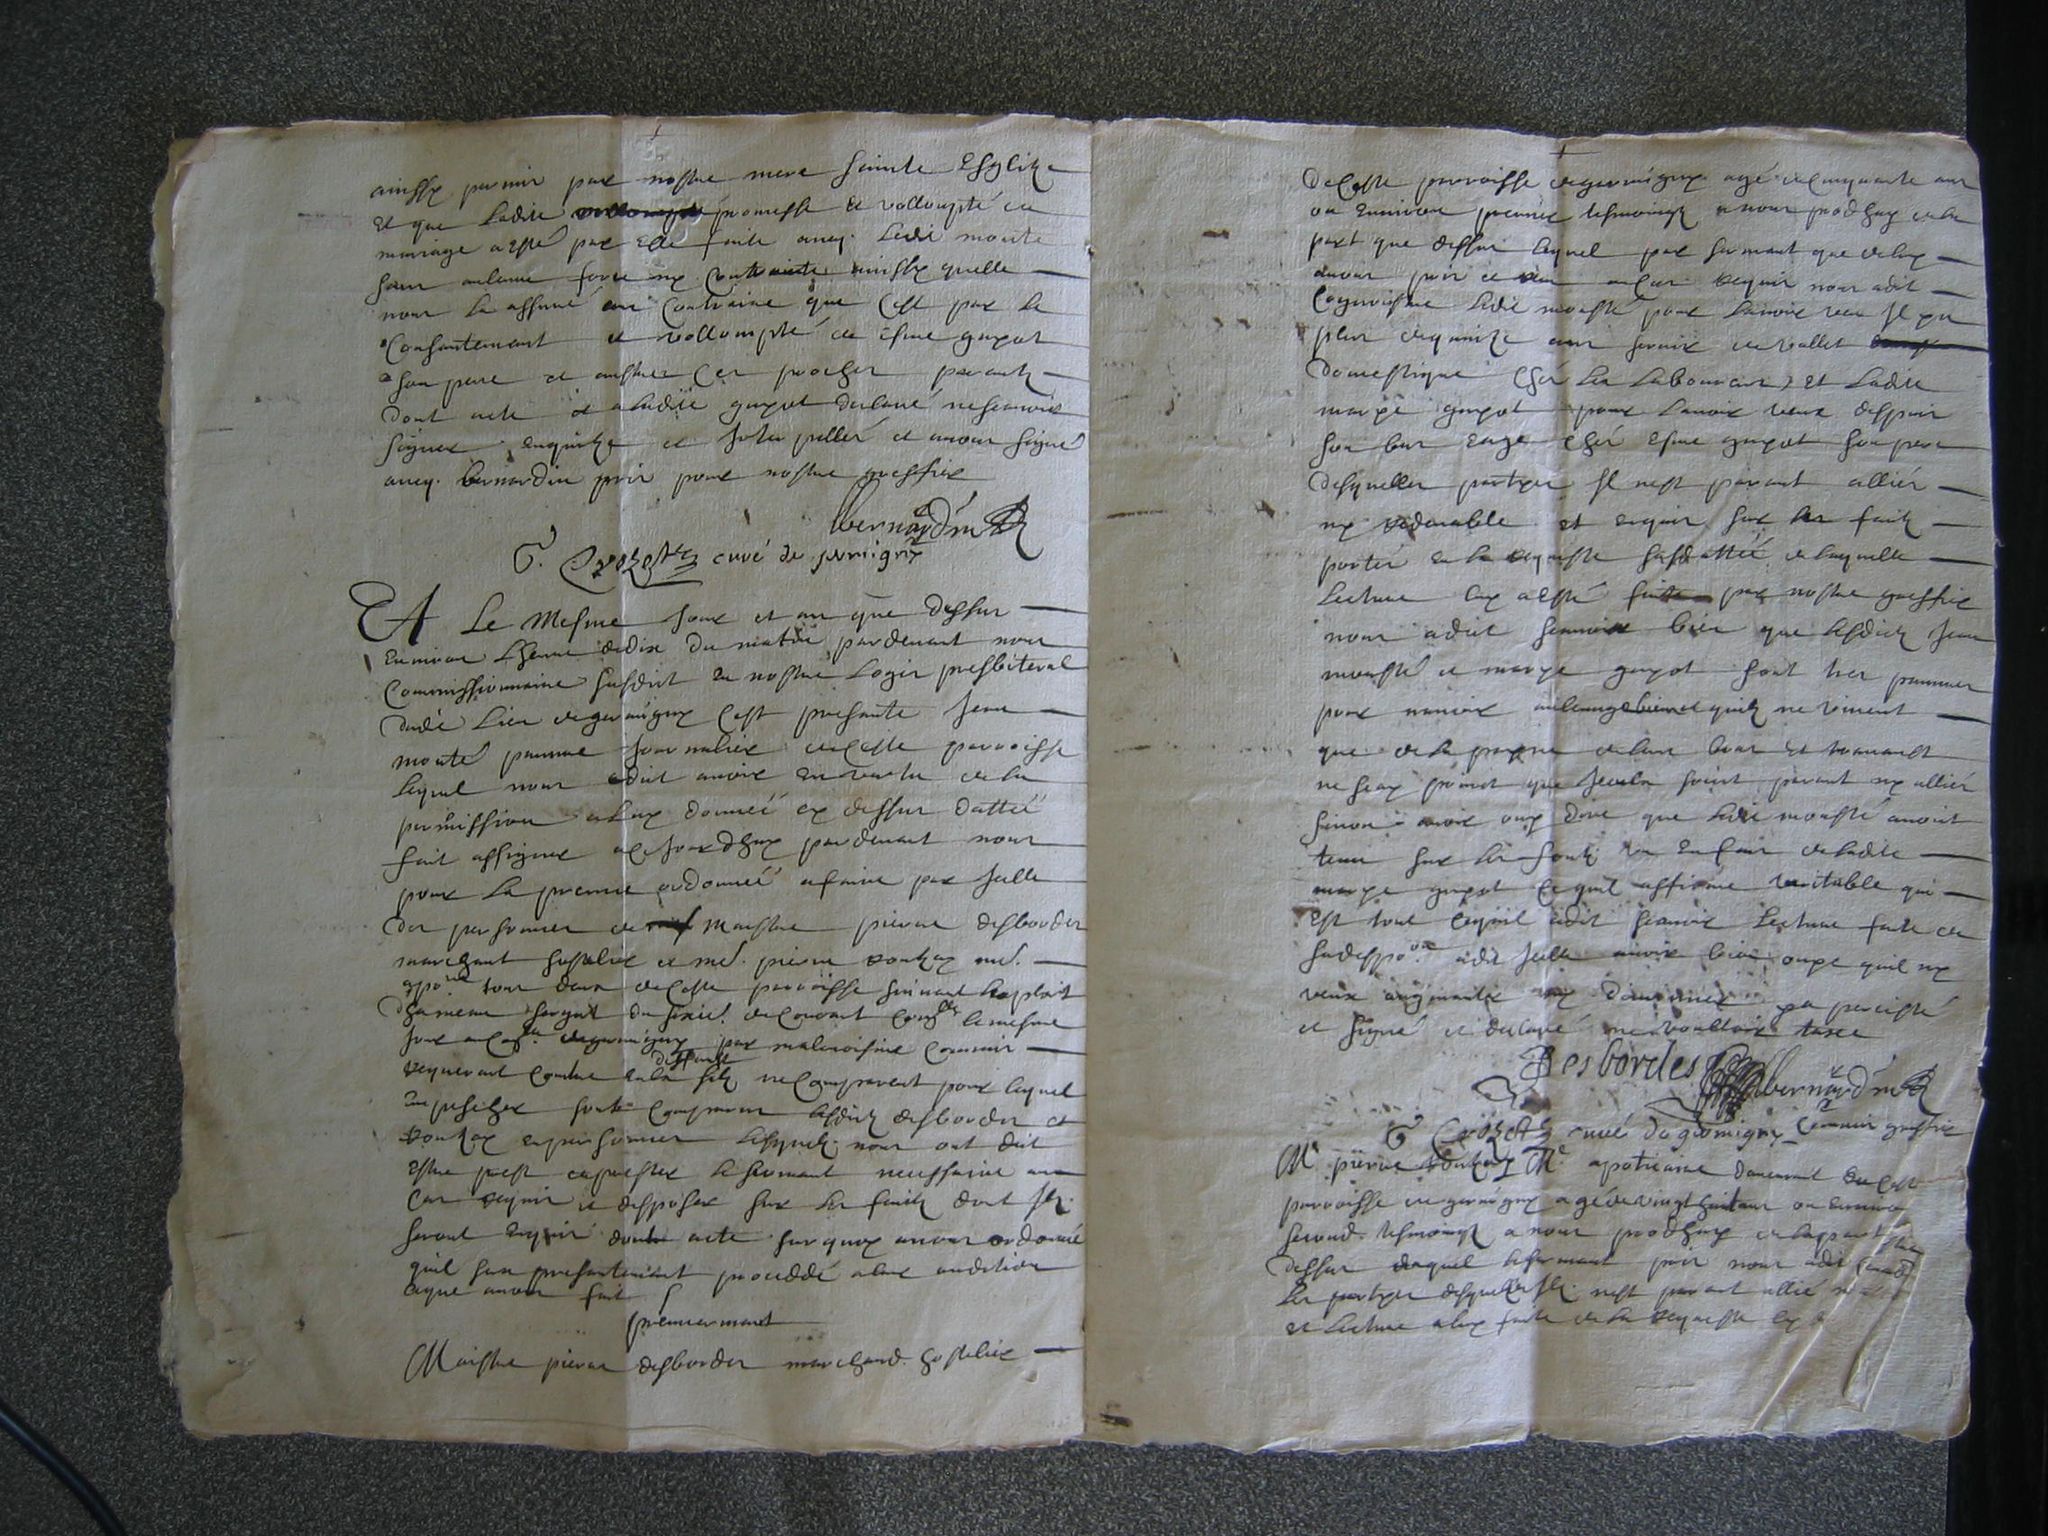 ainssy permir par nostre mere sainte Esglize
et que ladite promesse et vollompté de
mariage a esté par elle faite avecq. ledit monté
sans aulcune force ny contrainte ainssy quelle
nous la assuré au contraire que cest par le
consantement et vollompté de esme guyot
son pere et aultres ces proches parantz
dont acte et a ladite guyot declaré ne scavoir
signer enquize et interpellée et avons signé
avecq. bernardin pris pour nostre greffier
bernardin
crozet curé de germigny
Et Le mesme jour et an que dessus
environ lheure de dix du matin pardevant nous
commissionnaire susdit en nostre logis presbiteral
dudit lieu de germigny cest presanté Jean
monté pauvre journalier de ceste parroisse
lequel nous a dit avoir en vertu de la
permission a luy donnéé cy dessus dattéé
fait assigner a ce jourdhuy pardevant nous
pour la preuve ordonnéé a faire par icelle
des personnes de Maistre pierre desbordes
marchant hostelier et me. pierre me.
appore. tous deux de ceste parroisse suivant lexploit
sergent du de courant le mesme
jour a par malvoisine commis
requerant contre deffault ne comparent pour lequel
empescher sont comparus lesdictz desbordes et
en personnes lesquelz nous ont dit
estre prest a prester le serment necessaire au
cas requis et depposer sur les faitz dont ilz
seront enquis dont acte sur quoy avons ordonné
quil sera presantement proceddé a leur audition
ce que avons fait
premierement
Maistre pierre desbordes marchand. hostelier
de ceste parroisse de germigny agé de cinquante ans
ou environ premier tesmoingt a nous prodhuy de la
part que dessus lequel par serment que de luy
avons pris et au cas requis nous a dit
cognoistre ledit monsté pour lavoir veu il y a
plus de quinze ans servir de vallet
domestique ches les laboureurs et ladite
marye guyot pour lavoir veue deppuis
son bas eage ches esme guyot son pere
desquelles partyes il nest parant alliés
ny redevable et enquis sur les faitz
portés en la requeste susdattéé de laquelle
lecture luy a esté faite par nostre greffier
nous a dit scavoir bien que lesdictz Jean
monsté et marye guyot sont tres pauvres
pour navoir aulcungs bienet quilz ne vivent
que de la peyne de leurs bras et travailt
ne scay point que iceulx soient parant ny alliés
sinon avoir ouy dire que ledit monsté avoit
tenu sur les fontz un enfant de ladite
marye guyot ce quil affirme veritable qui
est tout ce quil a dit scavoir lecture faite de
sa deppoon. a dit icelle avoir bien ouye quil ny
veux augmanter ny diminuer y a percisté
et signé et declaré ne voulloir taxe
Desbordes bernardin
crozet curé de germigny commis greffier
Me pierre Me apoticaire demeurant en ceste
parroisse de germigny agé de vingt huit ans ou environ
second tesmoingt a nous prodhuy de la part que
dessus duquel le serment pris nous a dit
les partyes desquelles il nest parant allié
et lecture a luy faite de la requeste